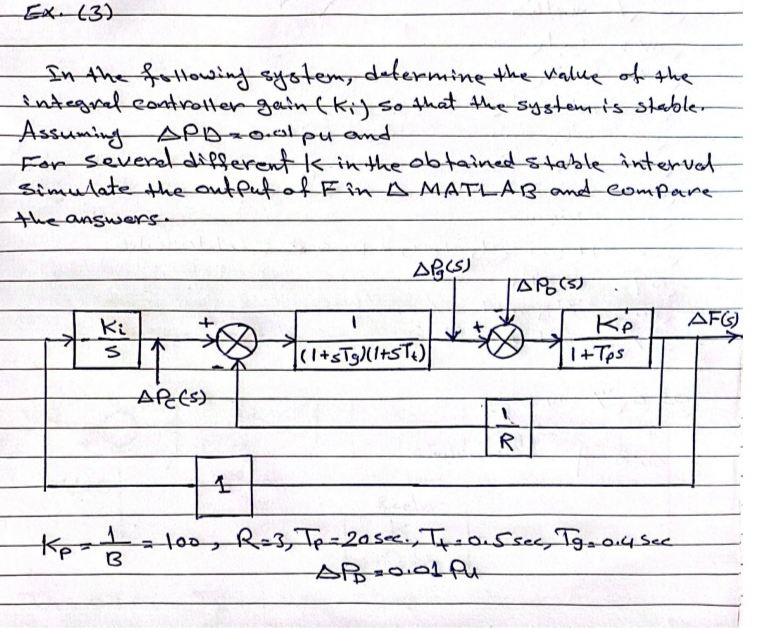 Ex. (3)
In the following system, determine the value of the
integral controller gain (Ki) so that the system is stable.
Assuming ΔPD = 0.01 pu and
For several different K in the obtained stable interval
Simulate the output of F in Δ MATLAB and compare
the answers.
ΔPg(s)
ΔPD(s)
Ki
S
+
-
1
(1+sTg)(1+sTt)
+
-
Kp
1+Tps
ΔF(s)
ΔPc(s)
1
R
1
Kp = 1/B = 100, R=3, Tp=20 sec., Tt=0.5 sec, Tg=0.4 sec
ΔPD=0.01 Pu